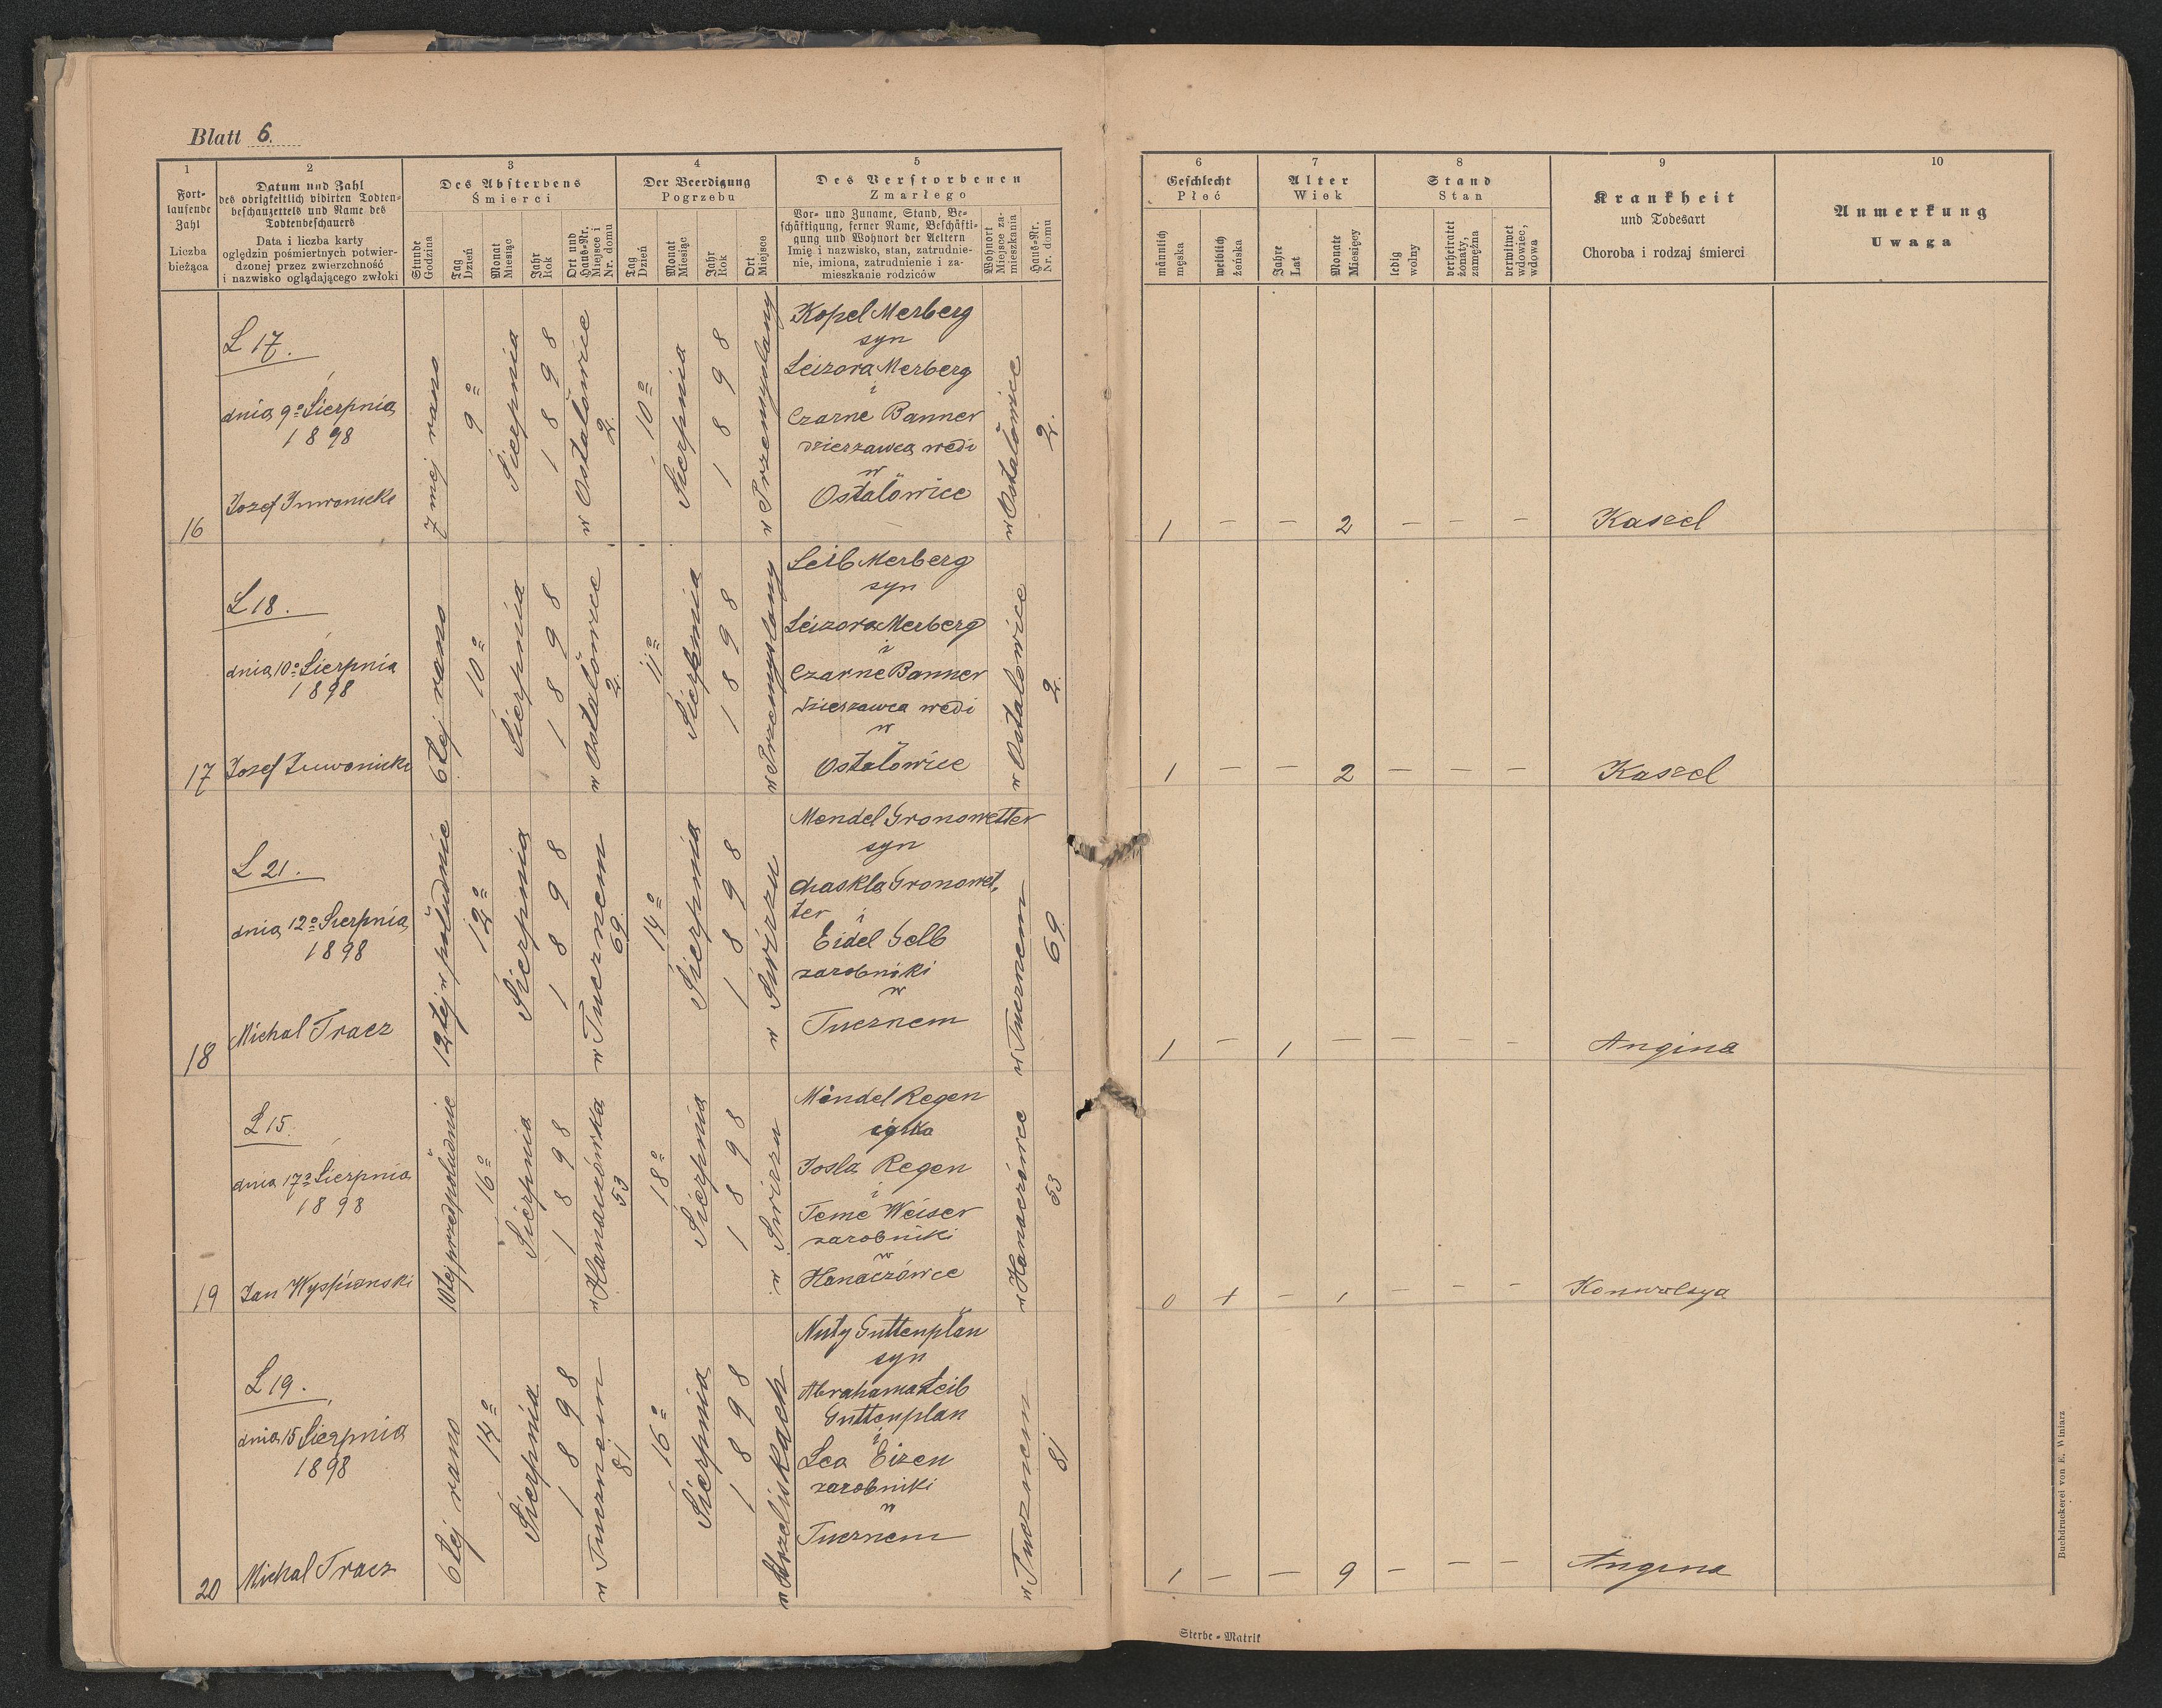 Blatt 6.
1
2
3
4
5
6
7
8
9
10
Fort-
laufende
Zahl
Liczba
bieżąca
Datum und Zahl
des obrigkeitlich vidirten Todten-
beschauzettels und Name des
Todtenbeschauers
Data i liczba karty
oględzin pośmiertnych potwier-
dzonej przez zwierzchność
i nazwisko oglądającego zwłoki
Des Absterbens
Śmierci
Stunde
Godzina
Tag
Dzień
Monat
Miesiąc
Jahr
Rok
Ort und
Haus-Nr.
Miejsce i
Nr. domu
Der Beerdigung
Pogrzebu
Tag
Dzień
Monat
Miesiąc
Jahr
Rok
Ort
Miejsce
Des Verstorbenen
Zmarłego
Vor- und Zuname, Stand, Be-
schäftigung, ferner Name, Beschäfti-
gung und Wohnort der Aeltern
Imię i nazwisko, stan, zatrudnie-
nie, imiona, zatrudnienie i za-
mieszkanie rodziców
Wohnort
Miejsce za-
mieszkania
Haus-Nr.
Nr. domu
Geschlecht
Płeć
männlich
męska
weiblich
żeńska
Alter
Wiek
Jahre
Lat
Monate
Miesięcy
Stand
Stan
ledig
wolny
verheiratet
żonaty,
zamężna
verwitwet
wdowiec,
wdowa
Krankheit
und Todesart
Choroba i rodzaj śmierci
Anmerkung
Uwaga
16
L 17.
dnia 9º Sierpnia
1898
Jozef
7 mej rano
9º
Sierpnia
1898
w Ostałowice
2.
10º
Sierpnia
1898
w Przemyslany
Kopel Merberg
syn
Leizora Merberg
i
Czarne Banner
dzierzawca wedi
w
Ostałowice
w Ostałowice
2.
1 – – 2 – – –
Kaszel
17
L 18.
dnia 10º Sierpnia
1898
Jozef
6tej rano
10º
Sierpnia
1898
w Ostałowice
2.
11º
Sierpnia
1898
w Przemyslany
Leib Merberg
syn
Leizora Merberg
i
Czarne Banner
dzierzawca wedi
w
Ostałowice
w Ostałowice
2.
1 – – 2 – – –
Kaszel
18
L 21.
dnia 12º Sierpnia
1898
Michal Tracz
12tej w południe
12º
Sierpnia
1898
w Tucznem
69.
14º
Sierpnia
1898
w Swirzu
Mendel Gronowetter
syn
Chaskla Gronowet-
ter i
Eidel Gelb
zarobniki
w
Tucznem
w Tucznem
69.
1 – 1 – – – –
Angina
19
L 15.
dnia 17º Sierpnia
1898
Jan Wyspianski
10tej przedpołudnie
16º
Sierpnia
1898
w Hanaczówka
53
18º
Sierpnia
1898
w Swirzu
Mendel Regen
córka
Josla Regen
i
Teme Weiser
zarobniki
w
Hanaczówce
w Hanaczówce
53
0 1 – 1 – – –
Konwulsya
20
L 19.
dnia 15 Sierpnia
1898
Michal Tracz
6tej rano
14º
Sierpnia
1898
w Tucznem
81
16º
Sierpnia
1898
Nuty Guttenplan
syn
Abrahama Leib
Guttenplan
i
Lea Eizen
zarobniki
w
Tucznem
w Tucznem
81
1 – – 9 – – –
Angina
Sterbe-Matrik
Buchdruckerei von E. Winiarz